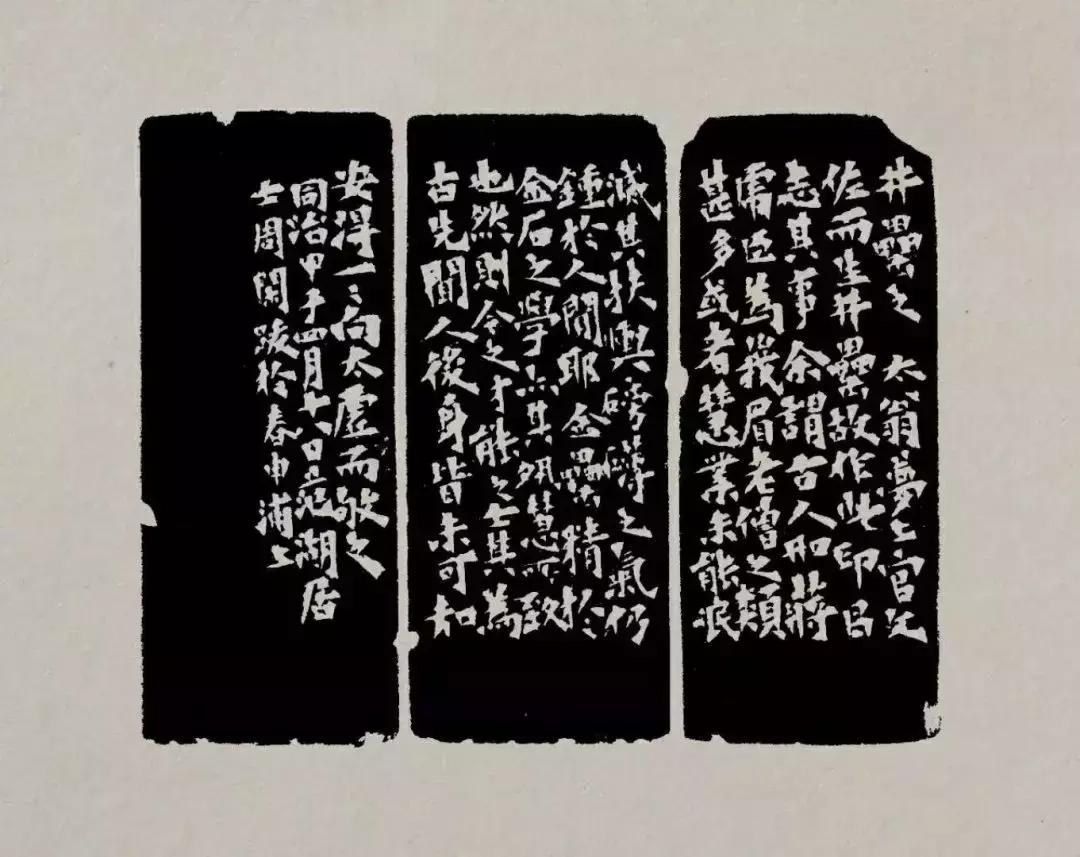 井罍之　太翁夢上官
佐而生井罍故作此印㠯
志其事余謂古人如蔣
虞臣為峩眉老僧之類
甚多或者慧業未能泯
滅其扶輿磅礴之氣仍
鍾於人間耶金罍精於
金石之學亦其夙慧所致
也然則今之才能之士其為
古先聞人後身皆未可知
安得一〻向太虛而敂之
同治甲子四月十八日范湖居
士周閑跋於春申浦上